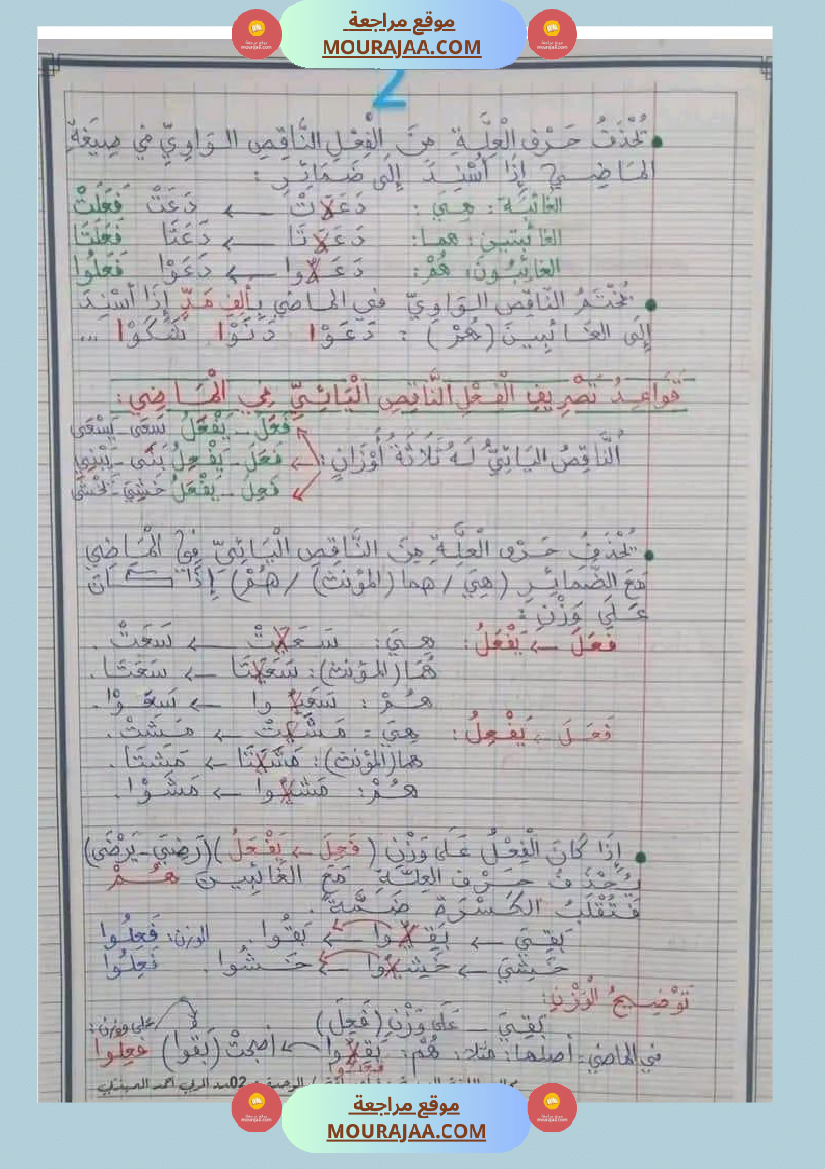 موقع مراجعة
MOURAJAA.COM
2
• تُحْذَفُ حَرْفُ الْعِلَّةِ مِنَ الْفِعْلِ النَّاقِصِ الـوَاوِيِّ في صِيغَةِ
المَـاضِـي إِذَا أُسْنِـدَ إِلَى ضَمَائِـرِ :
الغائبَـة : هِـيَ : دَعَـاتْ ← دَعَتْ فَعَلَتْ
الغائبتين : هما : دَعَـاتَا ← دَعَتَا فَعَلَتَا
الغائِبُـونَ : هُمْ : دَعَـاوا ← دَعَوْا فَعَلُوا
• يُخْتَـمُ النَّاقِص الـوَاوِيّ في المـاضي بِـألِفِ مَـدٍّ إِذَا أُسْنِـدَ
إِلَى الغَـائِبِيـنَ (هُمْ) : دَعَـوْا دَنَـوْا شَكَـوْا ...
قَوَاعِـدُ تَصْرِيفِ الْفِـعْلِ النَّاقِصِ الْيَائِـيِّ فِـي الْمَـاضِي :
فَعَلَ ـ يَفْعَلُ سَعَى ـ يَسْعَى
النَّاقِصُ اليَائِيُّ لَـهُ ثَلَاثَةُ أَوْزَانٍ : فَعَلَ ـ يَفْعِلُ بَنَى ـ يَبْنِي
فَعِلَ ـ يَفْعَلُ خَشِيَ ـ يَخْشَى
• يُحْذَفُ حَـرْفُ الْعِلَّـةِ مِنَ النَّـاقِصِ الْيَـائِيِّ فِي الْمَـاضِي
مَعَ الضَّمَائِـرِ (هِيَ / هما (المؤنث) / هُمْ) إِذَا كَـانَ
عَـلَى وَزْنِ :
فَعَلَ ← يَفْعَلُ : هِـيَ : سَعَـاتْ ← سَعَتْ .
هُمَا (المؤنث) : سَعَـاتَا ← سَعَتَـا .
هُـمْ : سَعَيـوا ← سَعَـوْا .
فَعَـلَ ← يَفْعِـلُ : هِيَ : مَشَـاتْ ← مَـشَتْ .
هما (المؤنث) : مَشَـاتَا ← مَشَتَا .
هُـمْ : مَشَـاوا ← مَشَـوْا .
• إِذَا كَانَ الْفِعْلُ عَلَى وَزْنِ ( فَعِلَ ← يَفْعَلُ ) (رَضِيَ ـ يَرْضَى)
يُـحْذَفُ حَـرْف العِلَّـةِ مَع الغَائِبِيـنَ هُـمْ
فَـتُقْلَبُ الكَـسْرَة ضَـمَّـةً .
بَقِـيَ ← بَقِيُـوا ← بَقُوا . الوزن : فَعِلُـوا
خَـشِيَ ← خَشِيُوا ← خَـشُوا . فَعِلُـوا
تَوْضِيـحُ الْوَزْنِ :
بَقِـيَ ـ عَلَى وَزْنِ (فَعِلَ) على وزن :
في الماضي : أصلها : مثلا : هُمْ : بَقِيُوا ← أصبحتْ (بَقُوا) فَعِلوا
موقع مراجعة
MOURAJAA.COM